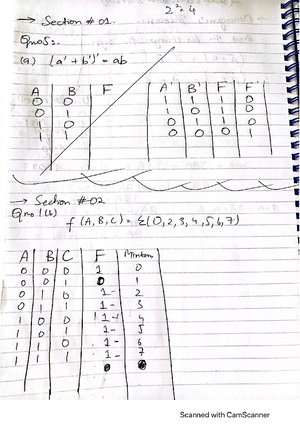 2² = 4
→ Section # 01.
Qno5:-
(a) (a' + b')' = ab
A B F
0 0
0 1
1 0
1 1
A' B' F F'
1 1 1 0
1 0 1 0
0 1 1 0
0 0 0 1
→ Section #02
Qno1(b)
f (A, B, C) = Σ(0,2,3,4,5,6,7)
A B C F Minterm
0 0 0 1 0
0 0 1 0 1
0 1 0 1- 2
0 1 1 1- 3
1 0 0 1- 4
1 0 1 1- 5
1 1 0 1- 6
1 1 1 1- 7
Scanned with CamScanner